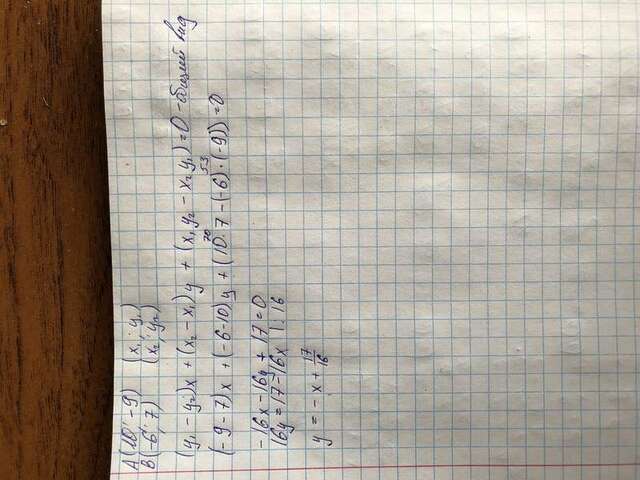 A(10; -9) (x₁; y₁)
B(-6; 7) (x₂; y₂)
(y₁ - y₂)x + (x₂ - x₁)y + (x₁y₂ - x₂y₁) = 0 - общий вид
(-9 - 7)x + (-6 - 10)y + (10 · 7 - (-6) · (-9)) = 0
70 53
-16x - 16y + 17 = 0
16y = 17 - 16x | : 16
y = -x + 17/16